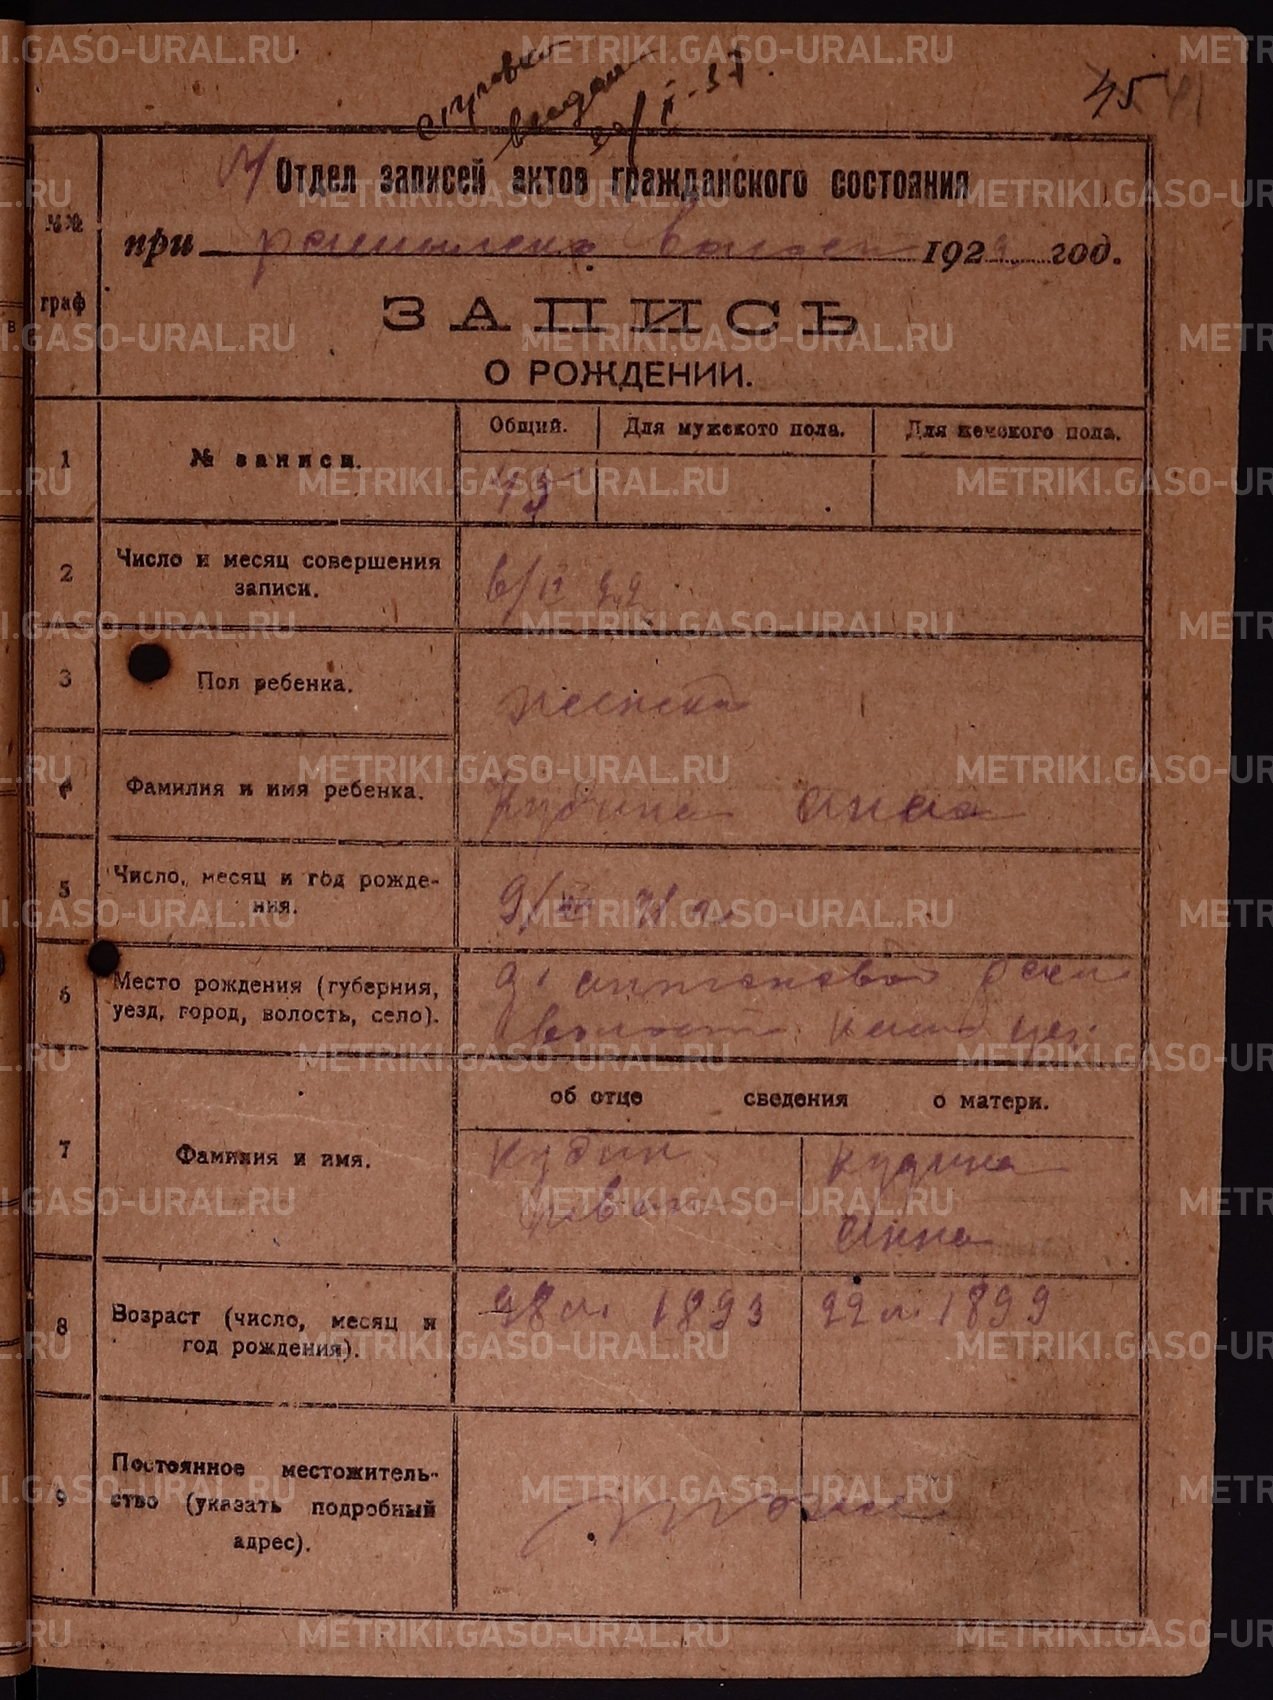 45 41
справка
выдан
Отдел записей актов гражданского состояния
№№ граф
при волост 192 год.
ЗАПИСЬ
О РОЖДЕНИИ.
Общий. Для мужского пола. Для женского пола.
1 № записи. 43
2 Число и месяц совершения
записи.
3 Пол ребенка. женска
4 Фамилия и имя ребенка. Кудина Анна
5 Число, месяц и год рожде-
ния.
6 Место рождения (губерния,
уезд, город, волость, село). волост
об отце сведения о матери.
7 Фамилия и имя. Кудин Кудина
Иван Анна
8 Возраст (число, месяц и 28 л. 1893 22 л. 1899
год рождения).
9 Постоянное местожитель-
ство (указать подробный тоже
адрес).
METRIKI.GASO-URAL.RU